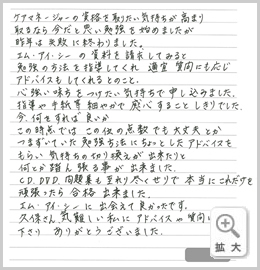 ケアマネージャーの資格を取りたい気持ちが高まり
取るなら今だと思い勉強を始めましたが
昨年は失敗に終わりました。
エム・アイ・シーの資料を請求してみると
勉強の方法を指導してくれ 適宜 質問にも応じ
アドバイスもしてくれるとのこと。
心強い味方をつけたい気持ちで申し込みました。
指導や手紙等 細やかで 感心することしきりでした。
今、何をすれば良いか
この時点では この位の点数でも大丈夫とか
つまずいていた勉強方法にちょっとしたアドバイスを
もらい 気持ちの切り換えが出来たりと
何とか踏ん張る事が出来ました。
CD、DVD、問題集も至れり尽くせりで 本当にこれだけを
頑張ったら合格出来ました。
エム・アイ・シーに出会えて良かったです。
久保さん、気難しい私に アドバイスや質問
下さり ありがとうございました。
拡大